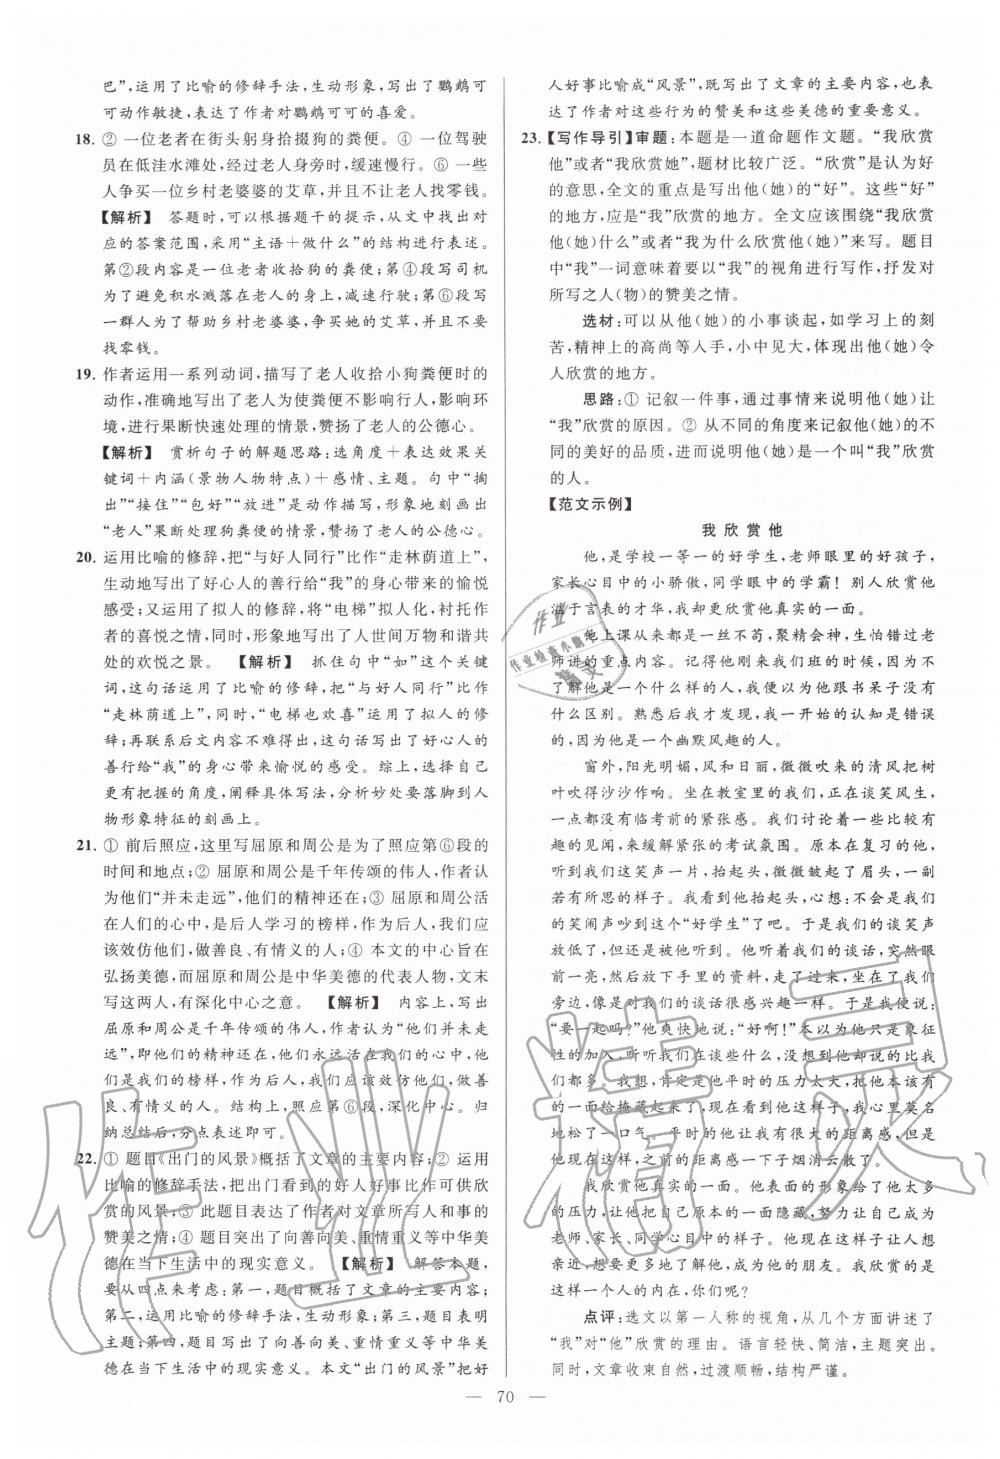 巴”,运用了比喻的修辞手法,生动形象,写出了鹦鹉可
可动作敏捷,表达了作者对鹦鹉可可的喜爱。
18. ② 一位老者在街头躬身拾掇狗的粪便。④ 一位驾驶
员在低洼水滩处,经过老人身旁时,缓速慢行。⑥ 一些
人争买一位乡村老婆婆的艾草,并且不让老人找零钱。
【解析】 答题时,可以根据题干的提示,从文中找出对
应的答案范围,采用“主语+做什么”的结构进行表述。
第②段内容是一位老者处理狗的粪便;第④段写司机
为了避免积水溅落在老人的身上,减速行驶;第⑥段写
一群人为了帮助乡村老婆婆,争买她的艾草,并且不要
找零钱。
19. 作者运用一系列动词,描写了老人收拾小狗粪便时的
动作,准确地写出了老人为使粪便不影响行人,影响环
境,进行果断快速处理的情景,赞扬了老人的公德心。
【解析】 赏析句子的解题思路:选角度+表达效果关
键词+内涵(景物人物特点)+感情、主题。句中“掏
出”“接住”“包好”“放进”是动作描写,形象地刻画出
“老人”果断处理狗粪便的情景,赞扬了老人的公德心。
20. 运用比喻的修辞,把“与好人同行”比作“走林荫道上”,
生动地写出了好心人的善行给“我”的身心带来的愉悦
感受;又运用了拟人的修辞,将“电梯”拟人化,衬托作者
的喜悦之情,同时,形象地写出了人世间万物和谐共
处的欢悦之景。 【解析】 抓住句中“如”这个关键
词,这句话运用了比喻的修辞,将“与好人同行”比作
“走林荫道上”,同时,“电梯也欢喜”运用了拟人的修
辞;再联系后文内容不难得出,这句话写出了好心人的
善行给“我”的身心带来愉悦的感受。综上,选择自己
更有把握的角度,阐释具体方法,分析妙处要落到人
物形象特征的刻画上。
21. ① 前后照应,这里写屈原和周公是为了照应第⑥段的
时间和地点;② 屈原和周公是千年传颂的伟人,作者
认为他们“并未走远”,他们的精神还在;③ 屈原和周公活
在人们的心中,是后人学习的榜样,作为后人,我们应
该效仿他们,做善良、有情义的人;④ 本文的中心旨在
弘扬美德,而屈原和周公是中华美德的代表人物,文末
写这两人,有深化中心之意。 【解析】 内容上,写出
屈原和周公是千年传颂的伟人,作者认为“他们并未走
远”,即他们的精神还在,他们永远活在我们的心中,他
们是我们的榜样,作为后人,我们应该效仿他们,做善
良、有情义的人。结构上,照应第⑥段,深化中心。归
纳总结后,分点表述即可。
22. ① 题目《出门的风景》概括了文章的主要内容;② 运用
比喻的修辞手法,把出门看到的好人好事比作可供欣
赏的风景;③ 此题目表达了作者对文章所写人和事的
赞美之情;④ 此题写出了向善向美、重情重义等中华美
德在当下生活中的现实意义。 【解析】 解答本题,
要从四点来考虑:第一,题目概括了文章的主要内容;
第二,运用比喻的修辞手法,生动形象;第三,题目表明
主题;第四,此题写出了向善向美、重情重义等中华美
德在当下生活中的现实意义。本文“出门的风景”把好
人好事比喻成“风景”,既写出了文章的主要内容,也表
达了作者对这些行为的赞美和这些美德的重要意义。
23.【写作导引】审题:本题是一道命题作文题。“我欣赏
他”或者“我欣赏她”,题材比较广泛。“欣赏”是认为好
的意思,全文的重点是写出他(她)的“好”。这些“好”
的地方,应是“我”欣赏的地方。全文应该围绕“我欣赏
他(她)什么”或者“我为什么欣赏他(她)”来写。题目
中“我”一词意味着要以“我”的视角进行写作,抒发对
所写之人(物)的赞美之情。
选材:可以从他(她)的小事谈起,如学习上的刻
苦,精神上的高尚等入手,小中见大,体现出他(她)令
人欣赏的地方。
思路:① 记叙一件事,通过事情来说明他(她)让
“我”欣赏的原因。② 从不同的角度来记叙他(她)的不
同的美好的品质,进而说明他(她)是一个叫“我”欣赏
的人。
【范文示例】
我 欣 赏 他
他,是学校一等一的好学生,老师眼里的好孩子,
家长心目中的小骄傲,同学眼中的学霸!别人欣赏他
溢于言表的才华,我欣赏他真实的一面。
他上课从来都是一丝不苟,聚精会神,生怕错过老
师讲的重点内容。记得他刚来我们班的时候,因为不
了解他是一个什么样的人,我便以为他跟书呆子没有
什么区别。熟悉后我才发现,我一开始的认知是错误
的,因为他是一个幽默风趣的人。
窗外,阳光明媚,风和日丽,微微吹来的清风把树
叶吹得沙沙作响。坐在教室里的我们,正在谈笑风生,
一点都没有临考前的紧张感。讨论着一些比较有
趣的见闻,来缓解紧张的考试氛围。原本在复习的他,
听到我们这笑声一片,抬起头,微微皱起了眉头,一副
若有所思的样子。我看到他抬起头,心想:不会是我们
的笑闹声吵到这个“好学生”了吧。于是我们的谈笑声
放低了,害怕再被他听到。他听着我们的谈话,突然眼
前一亮,然后放下手里的资料,走了过来,坐在了我们
旁边,像是对我们的谈话很感兴趣一样。于是我便说:
“要一起吗?”他爽快地说:“好啊!”本以为他只是象征
性的加入,听听我们在说些什么,没想到他却说的比我
们都多。我想,肯定是他平时的压力太大,把他本该有
的一面给掩藏起来了。现在看到他这样子,我心里莫名
地松了一口气。平时的他让人有很大的距离感,但他
现在这样,之前的距离感一下子烟消云散了。
我欣赏他真实的一面。他表面的形象给了他太多
的压力,让他把自己原本的一面隐藏,努力让自己成为
老师、家长、同学心目中的样子。他现在这样子让人想
亲近,想要更多地了解他,成为他的朋友。我欣赏的是
这样一个人的内在,你们呢?
点评:选文以第一人称的视角,从几个方面讲述了
“我”对“他”欣赏的理由。语言轻快、简洁,主题突出。
同时,文章收束自然,过渡顺畅,结构严谨。
— 70 —
作业精灵